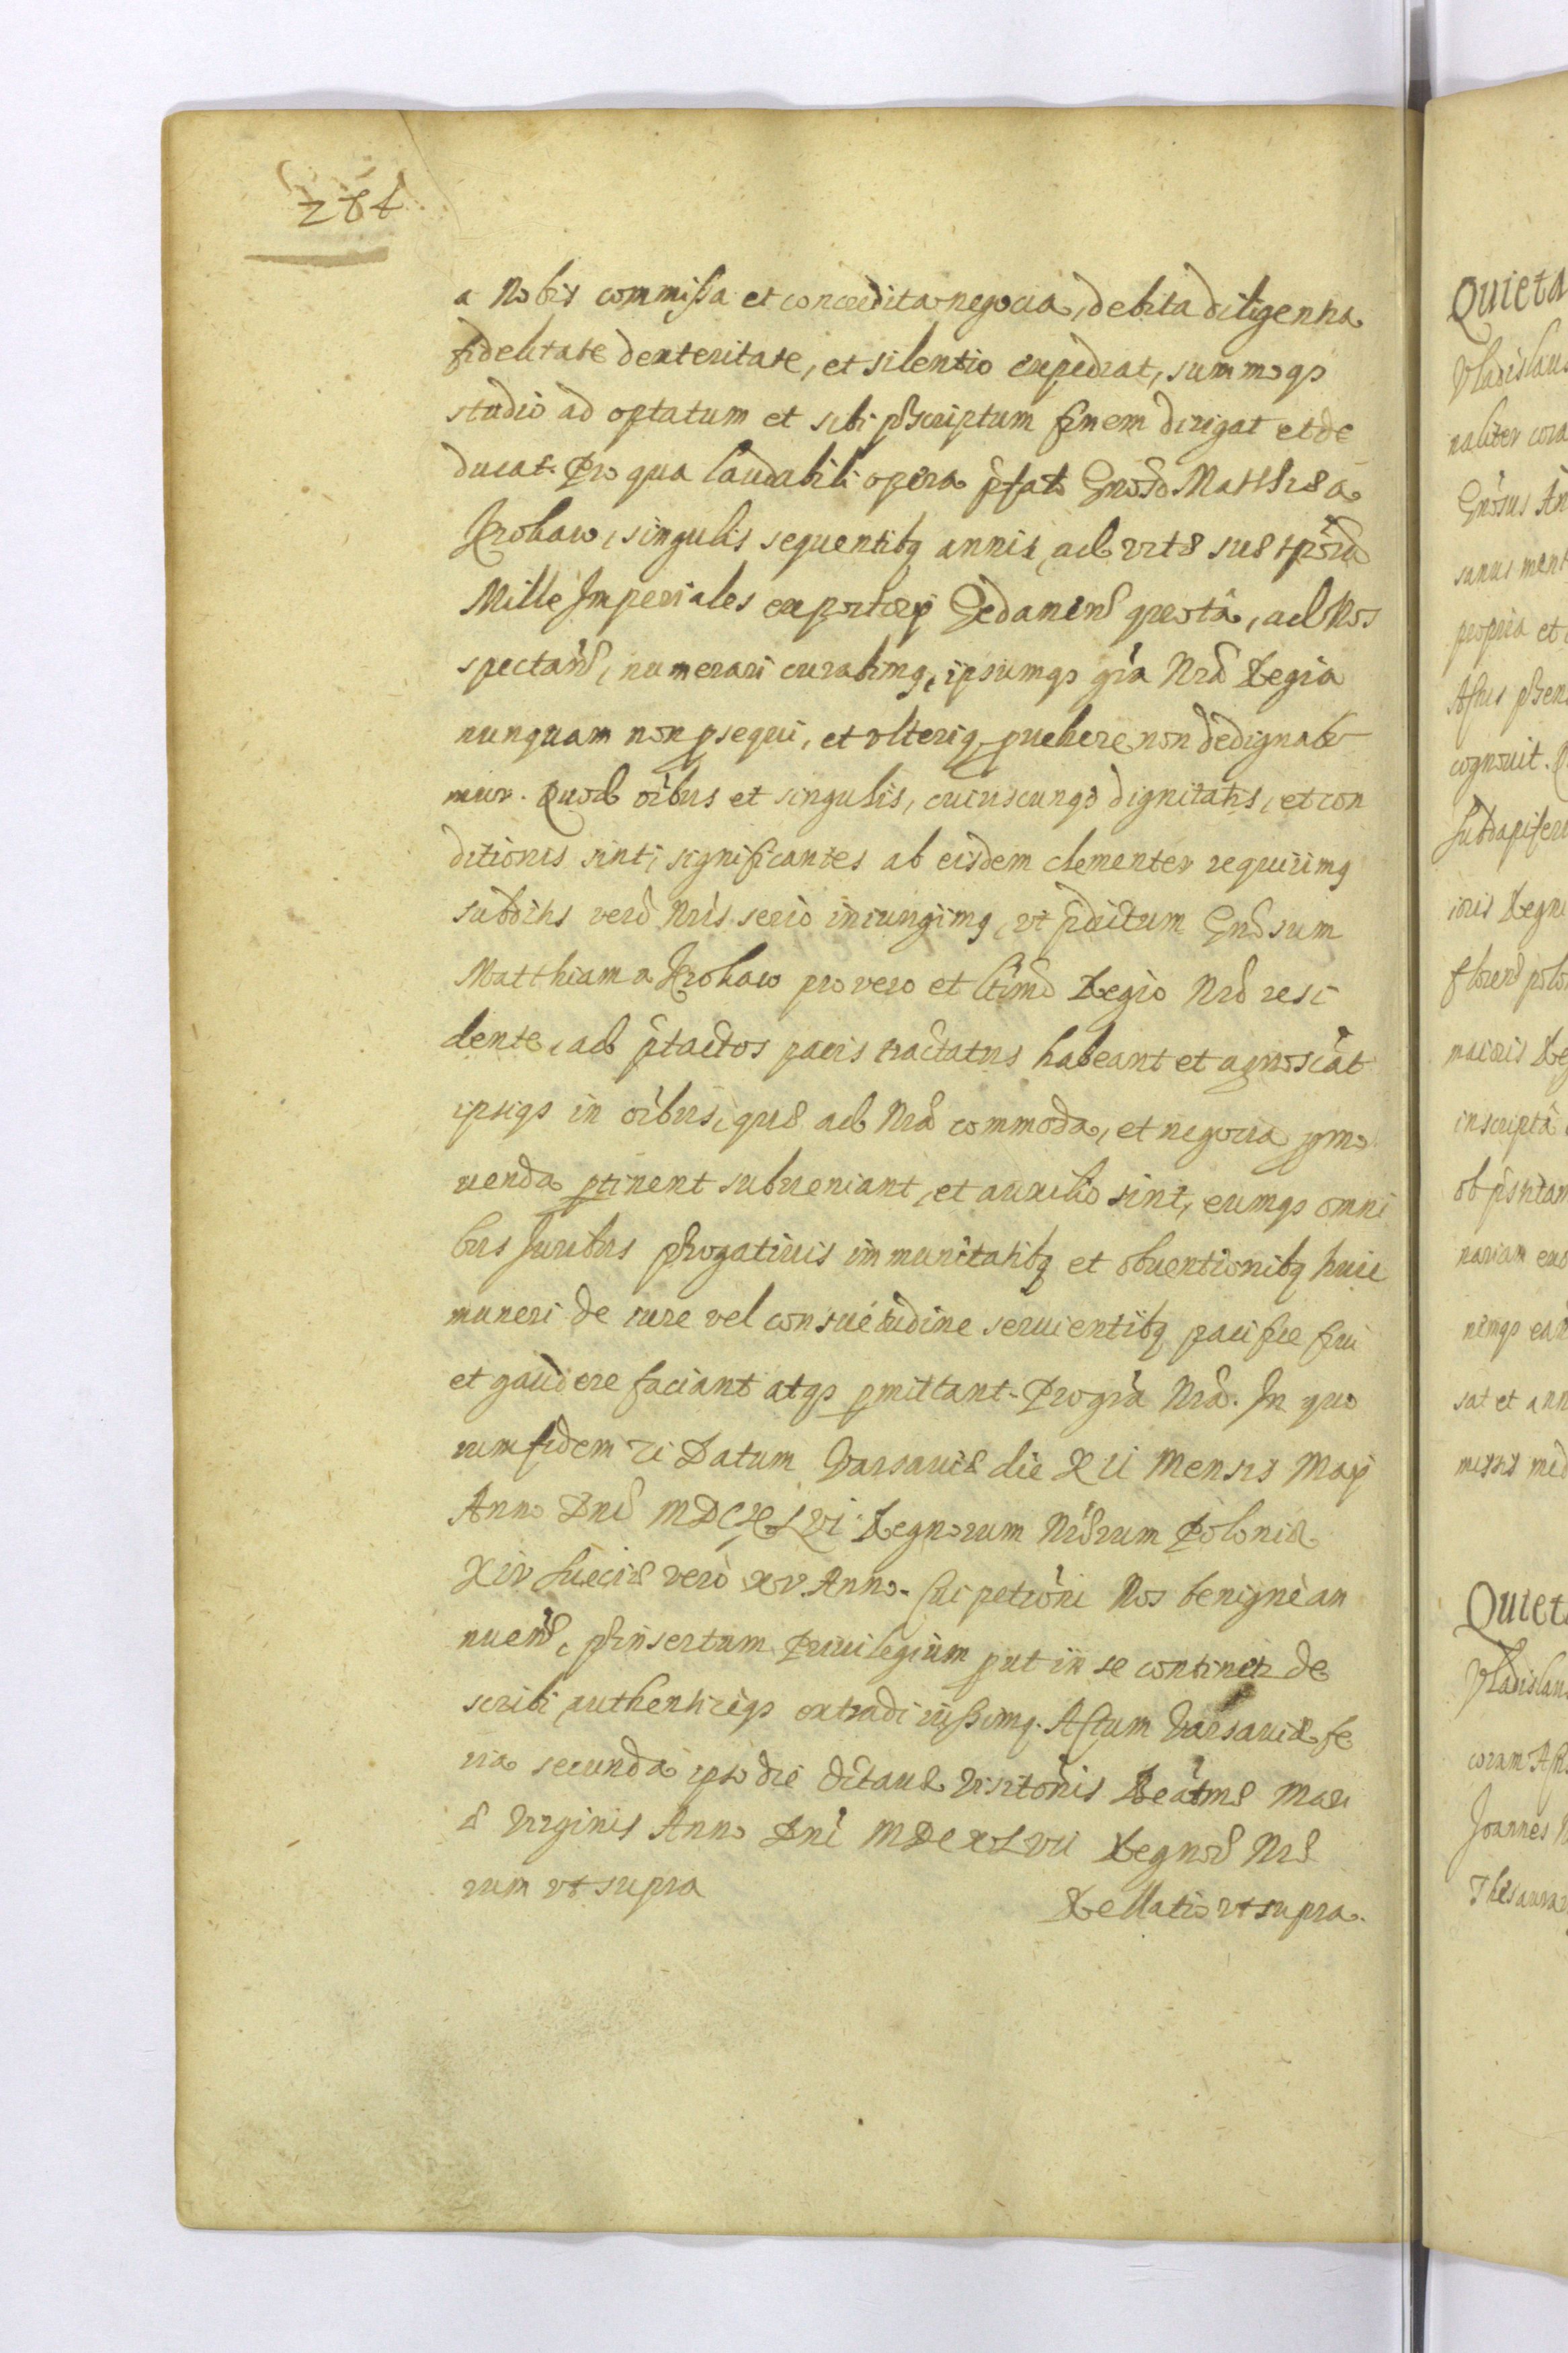 284
a Nobis commissa et concredita negocia, debita diligentia
fidelitate dexteritate, et silentio expediat, summoqȝ
studio ad optatum et sibi pֿscriptum finem dirigat et de
ducat. Pro qua laudabili opera pֿfato Gnoso Matthiæ a
Krokaw, singulis sequentibꝫ annis, ad vitæ suæ tpora
Mille Imperiales ex portorij Gedanens quota, ad Nos
spectañ, numerari curabimꝫ, ipsumqȝ grã Nra Regia
nunquam non psequi, et vlteriꝫ puehere non dedignabi
mur. Quod oibus et singulis, cuiuscunqȝ dignitatis, et con
ditionis sint, significantes ab eisdem clementer requirimꝫ
subditis vero Nris serio iniungimꝫ, vt pֿdictum Gnosum
Matthiam a Krokaw pro vero et ltimo Regio Nro resi
dente, ad pֿtactos pacis tractatus habeant et agnoscãt
ipsiqȝ in oibus, quæ ad Nra commoda, et negocia pmo
uenda ptinent subueniant, et auxilio sint, eumqȝ omni
bus Iuribus pֿrogatiuis immunitatibꝫ et obuentionibꝫ huic
muneri de iure vel consuetudine seruientibꝫ pacifice frui
et gaudere faciant atqȝ pmittant. Pro grã Nra. In quo
rum fidem
Datum Varsauiæ die XII Mensis Maij
Anno Dni MDCXLVI Regnorum Nrorum Poloniæ
XIV Sueciæ verò XV. Anno. Cui petitioni Nos benignè an
nueñ, pֿinsertum Priuilegium put in se continetr de
scribi, authenticeqȝ extradi iussimꝫ. Actum Varsauiæ fe
ria secunda ipso die Visitõnis Beatmæ Mari
æ Virginis Anno Dni MDCXLVII Regnor Nro
rum vt supra
Rellatio vt supra.
Quieta
Vladislaus
naliter cora
Gnosus An
sanus ment
propria et
Actis pֿsen
cognouit.
Subdapifer
ioris Regni
inscripta
ob
nariam
nimqȝ
sat et ann
Quiet
Vladislau
coram Act
Joannes
Thesaurar